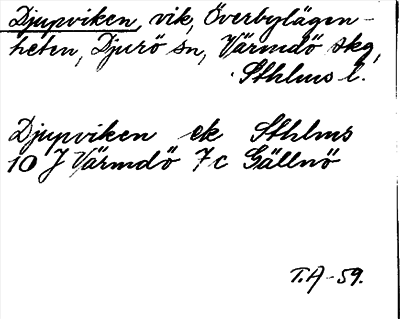 Djupviken, vik, Överbylägen-
heten, Djurö sn, Värmdö skg,
Sthlms l.
Djupviken ek Sthlms
10 J Värmdö 7c Gällnö
T.A-59.